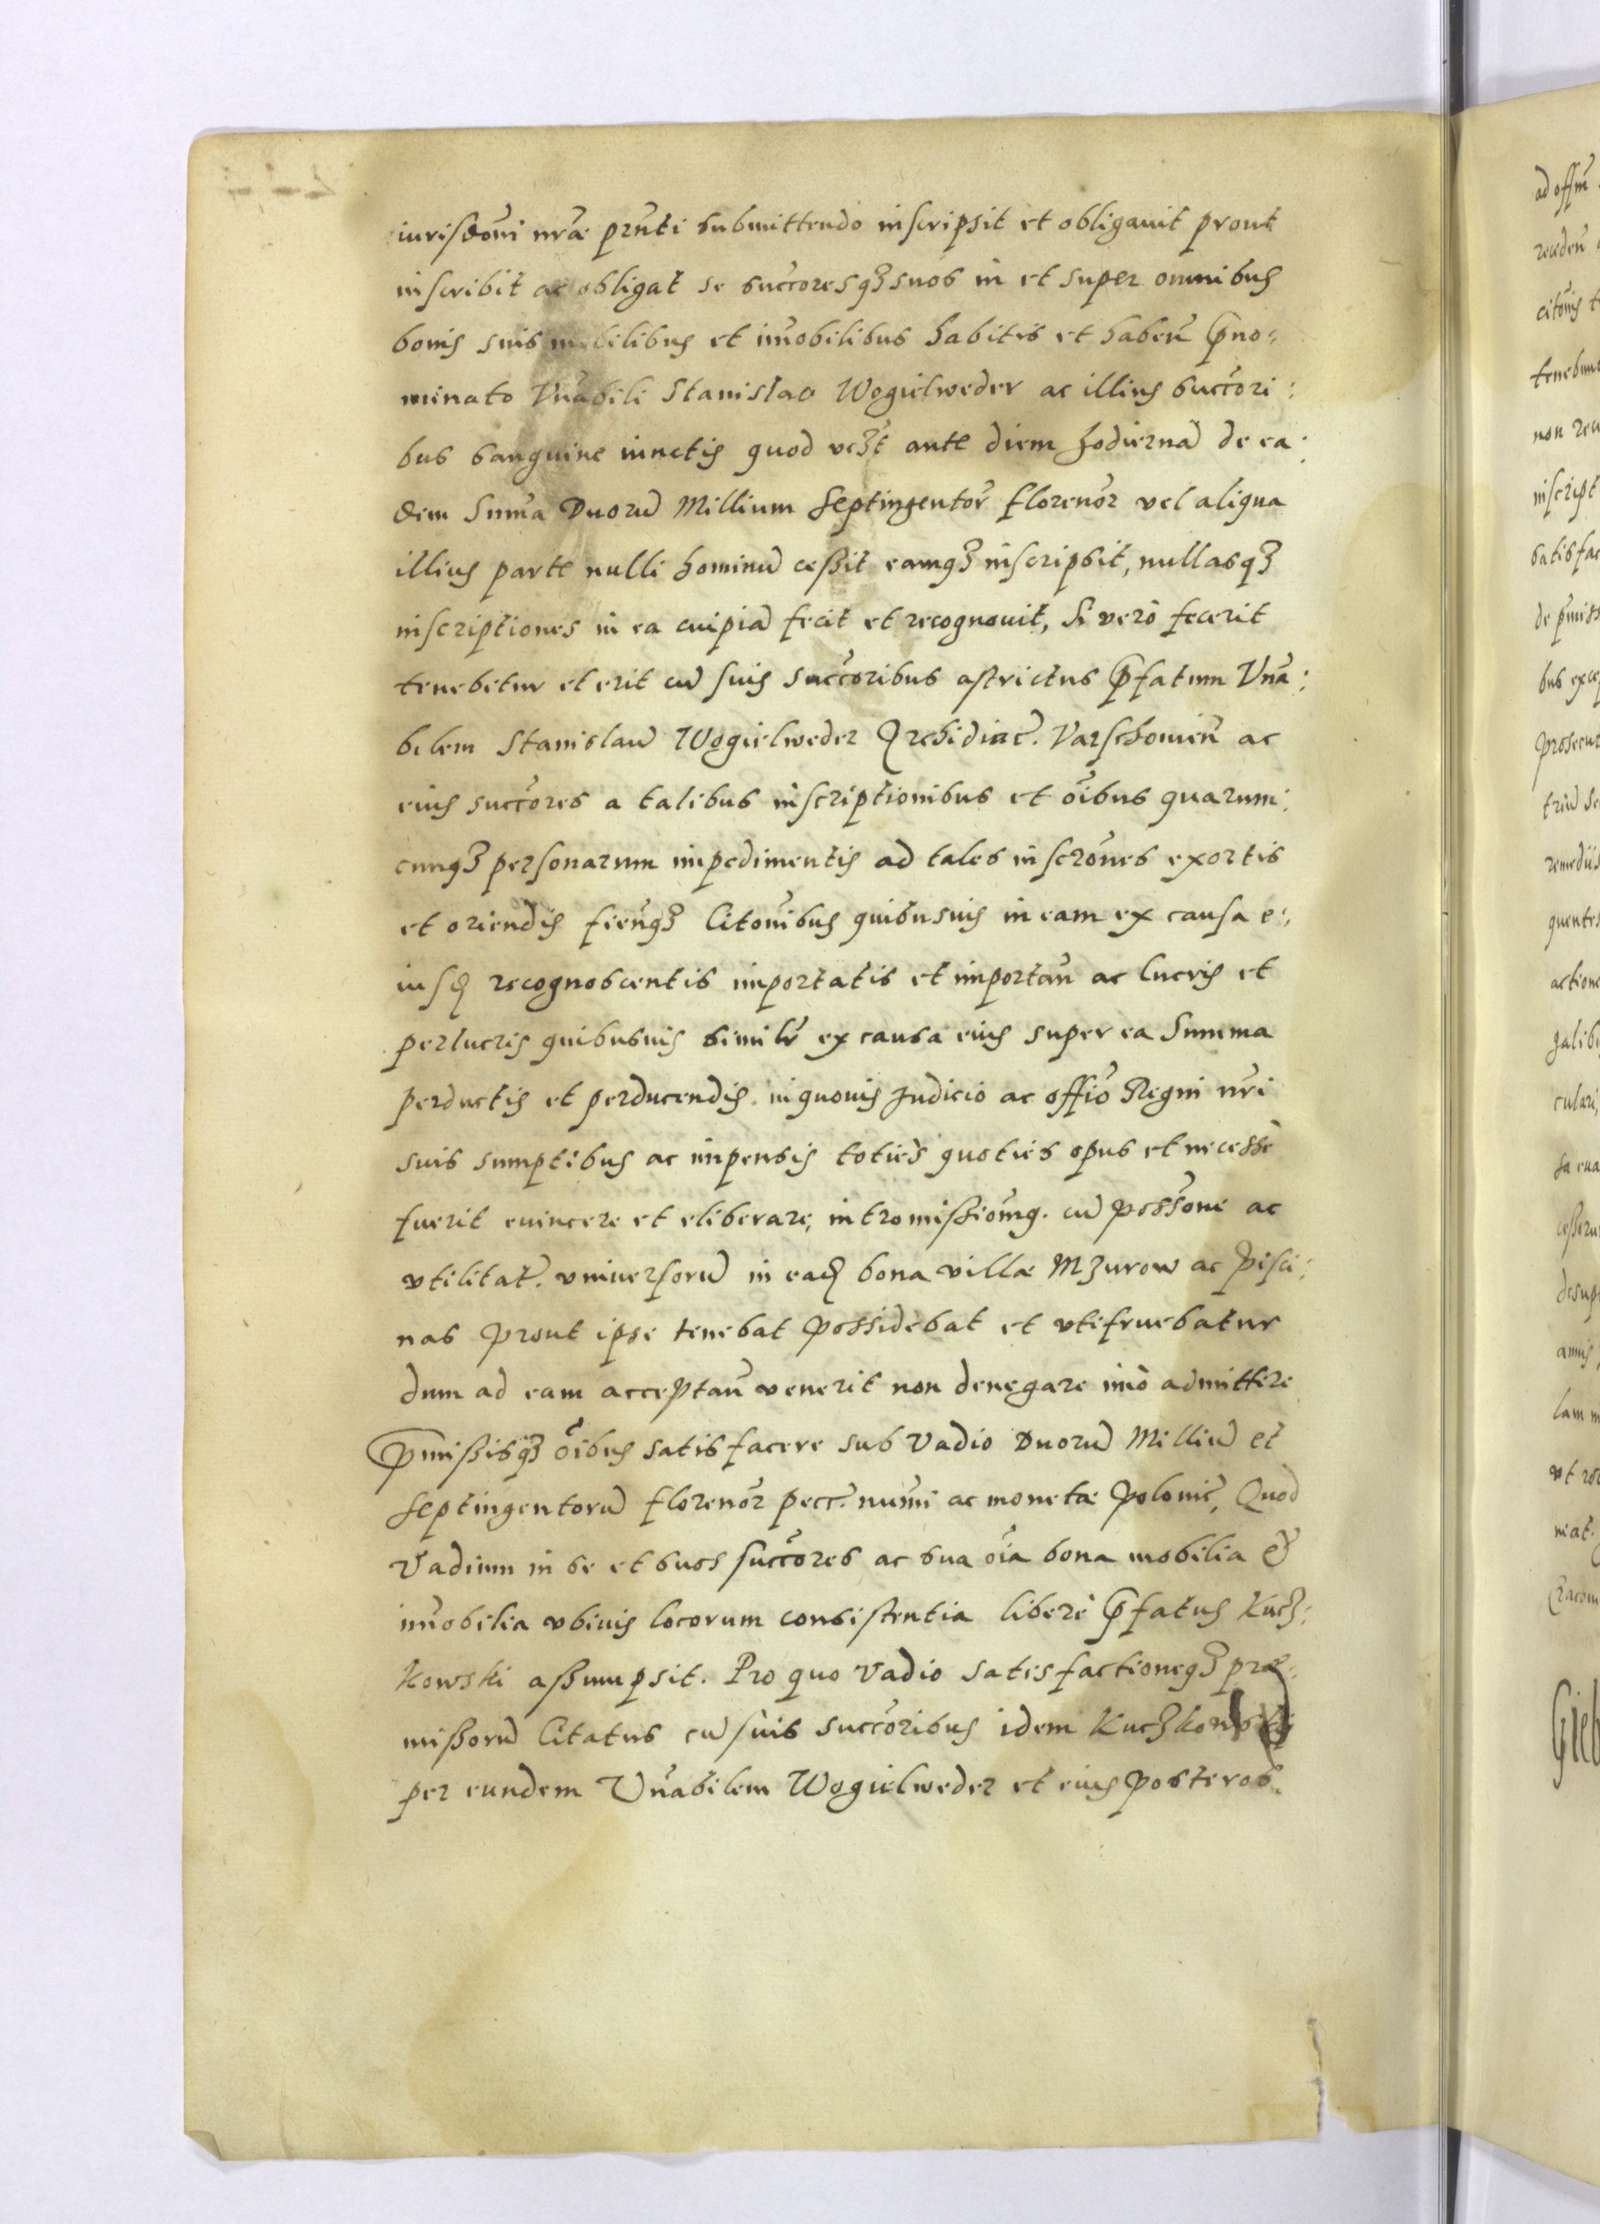 iurisdoni nrae pnti submittendo inscripsit et obligauit prout
inscribit ac obligat se succores qʒ suos in et super omnibus
bonis suis mobilibus et imobilibus habitis et haben pno:
minato Vnabili Stanislao Wogielweder ac illius succori:
bus sanguine iunctis quod vcʒt ante diem hodierna de ea:
dem Suma Duoru Millium Septingentor florenor vel aliqua
illius parte nulli hominu cessit eamqʒ inscripsit, nullasqʒ
inscriptiones in ea cuipia fecit et recognouit, Si verò fecerit
tenebitur et erit cu suis succoribus astrictus pfatum Vna:
bilem Stanislau Wogielweder Archidiac. Varschouien ac
eius succores a talibus inscriptionibus et oibus quarum:
cunqʒ personarum impedimentis ad tales inscrones exortis
et oriendis fienqʒ Citonibus quibusuis in eam ex causa e:
iusd recognoscentis importatis et importan ac lucris et
perlucris quibusuis similr ex causa eius super ea Summa
perductis et perducendis in quouis Judicio ac offio Regni nri
suis sumptibus ac impensis totiès quoties opus et necessè
fuerit euincere et eliberare, intromissiomq. cu possone ac
vtilitat. vniuersoru in ead bona villae Mʒurow ac Pisci:
nas prout ipse tenebat possidebat et vtefruebatur
dum ad eam acceptan venerit non denegare imò admittere
pmissisqʒ oibus satisfacere sub vadio Duoru Milliu et
Septingentoru florenor pecc. numi ac monetae Polonic, Quod
Vadium in se et suos succores ac sua oia bona mobilia et
imobilia vbiuis locorum consistentia liberè pfatus Kucʒ:
kowski assumpsit. Pro quo vadio satisfactioneqʒ prae:
missoru Citatus cu suis succoribus idem Kucʒkowski
per eundem Vnabilem Wogielweder et eius posteros